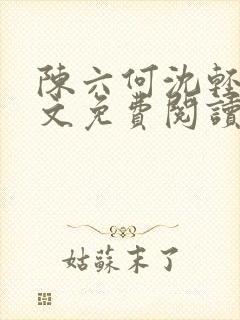 陳六何沈輕
文免費閱讀
姑蘇末了